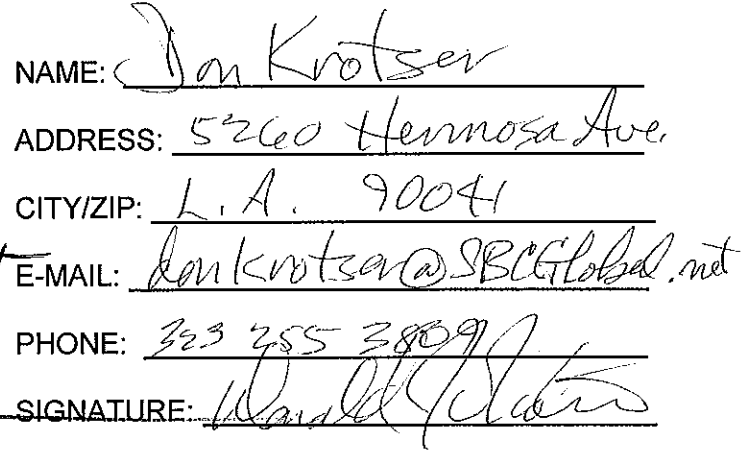 NAME: Don Krotser
ADDRESS: 5260 Hermosa Ave.
CITY/ZIP: L.A. 90041
E-MAIL: donkrotser@SBCGlobal.net
PHONE: 323 255 3809
SIGNATURE: Donald